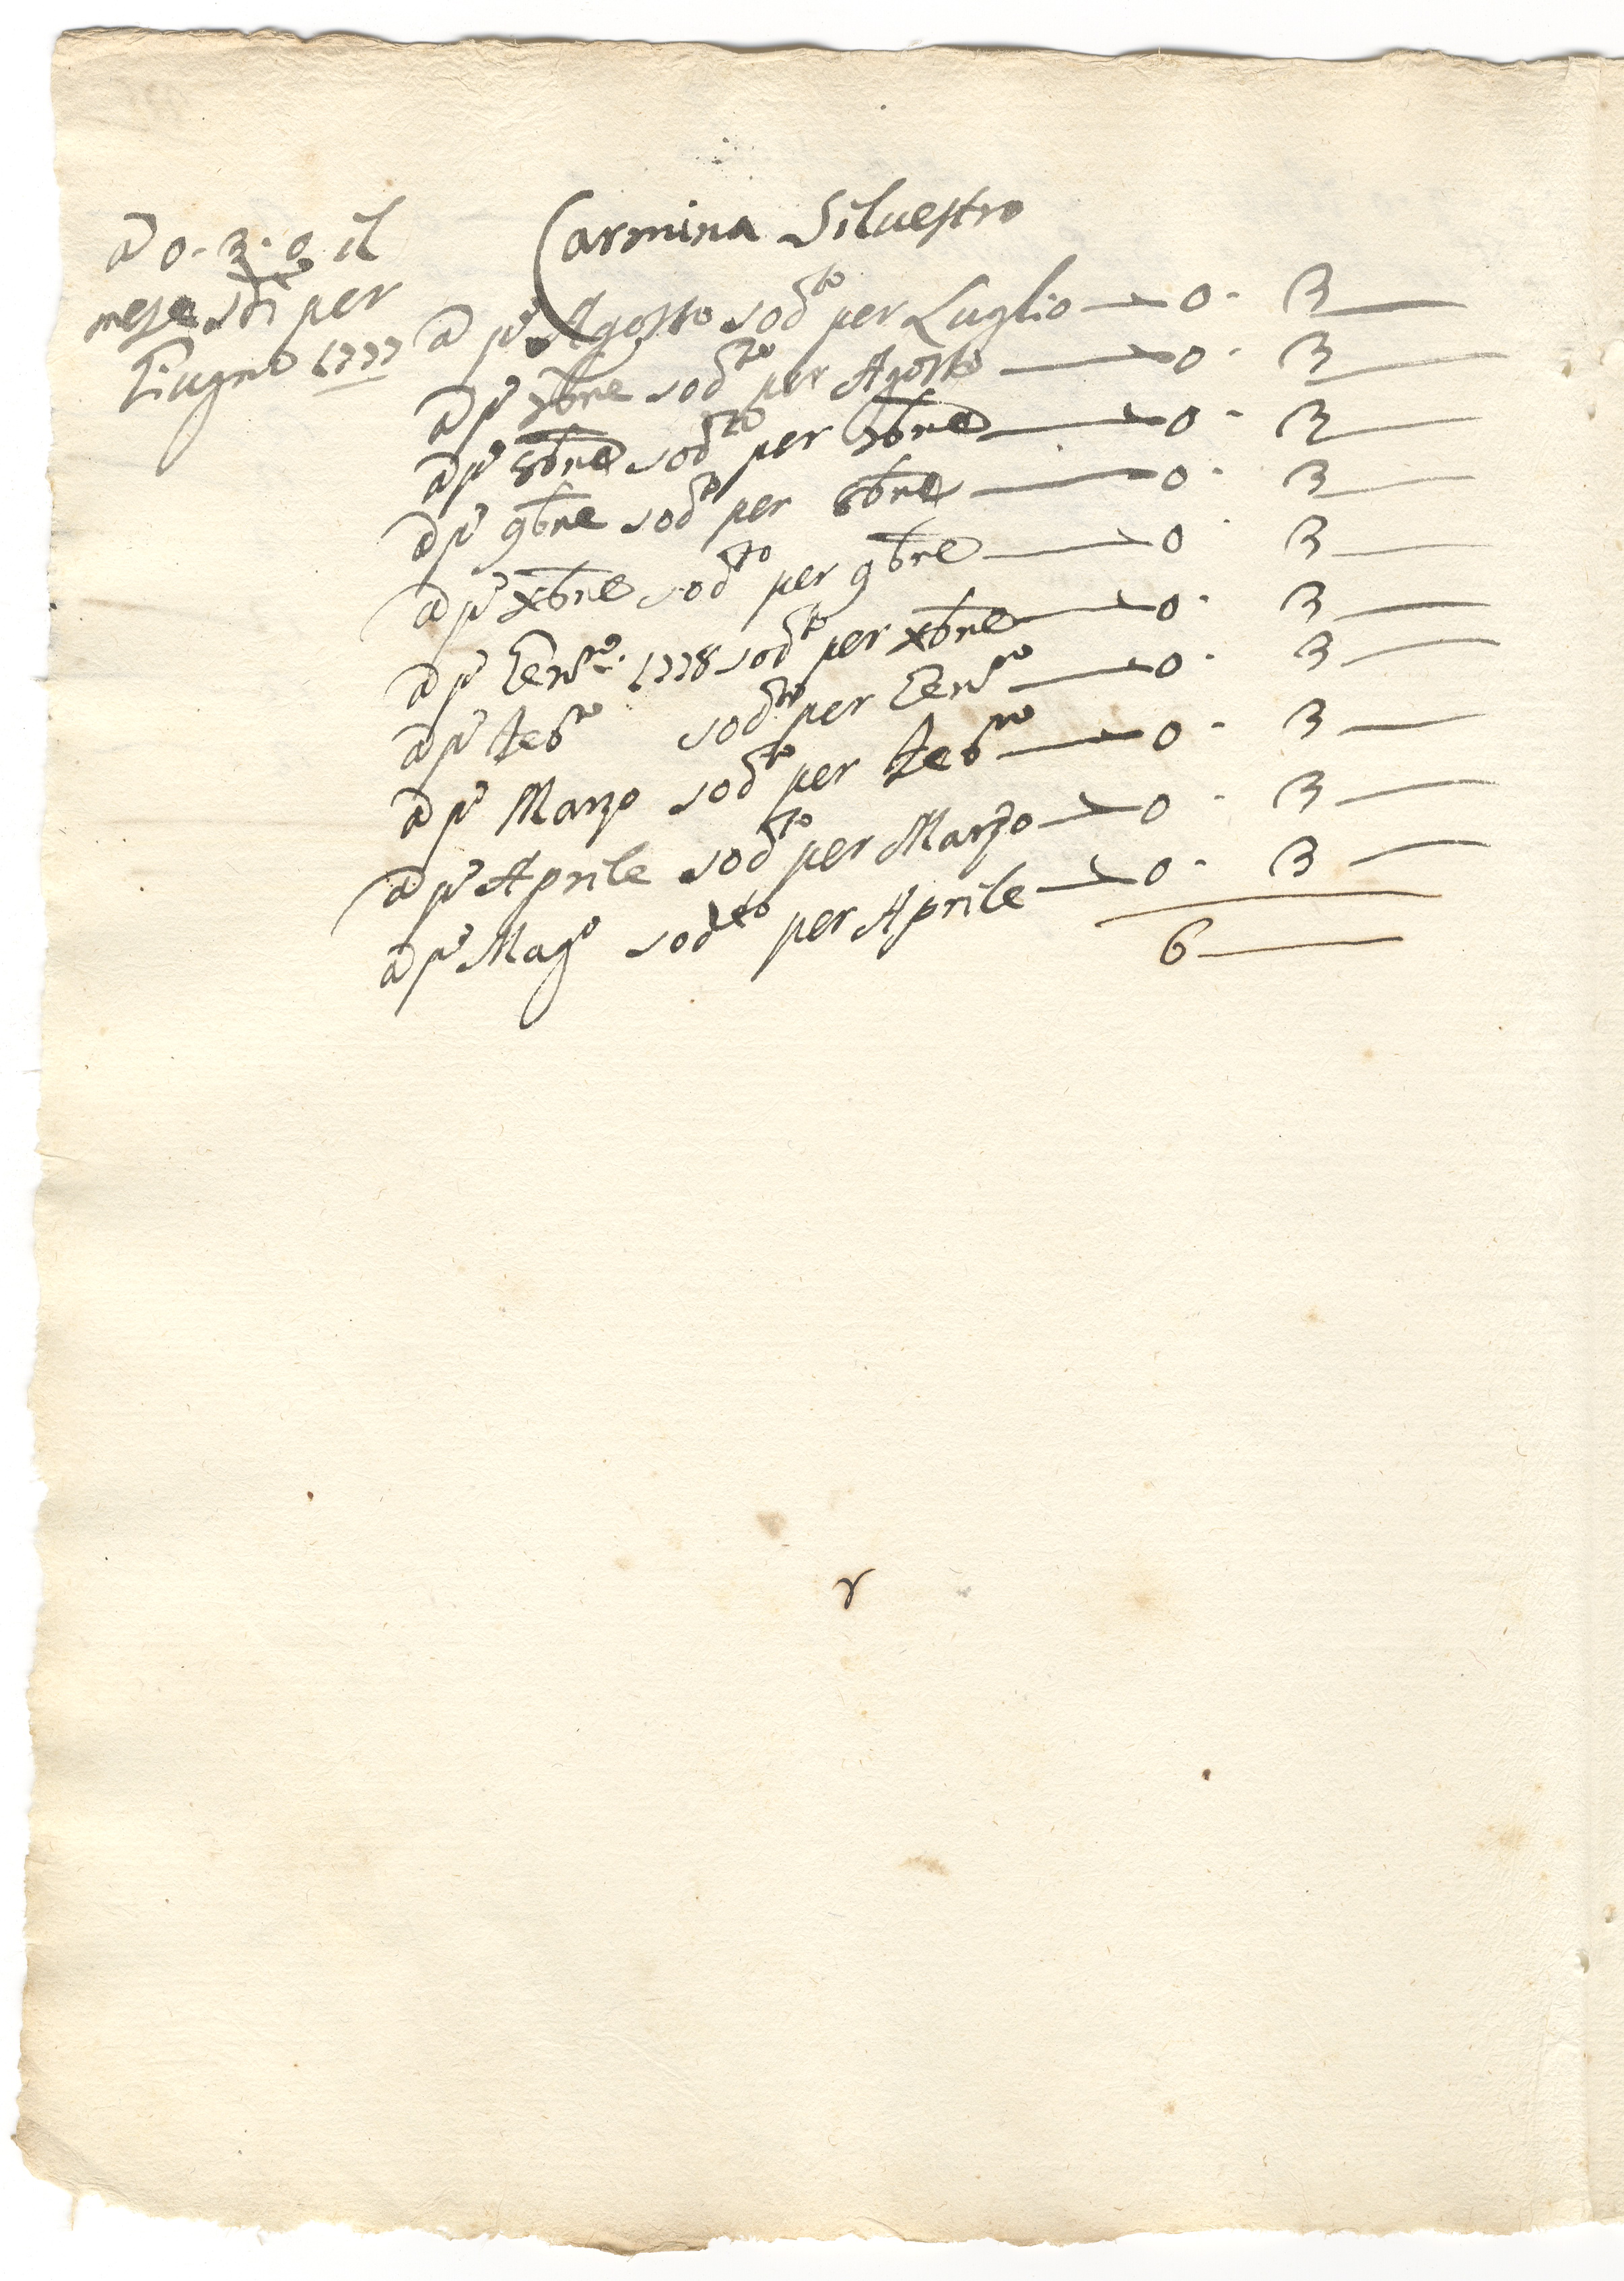 Carmina Siluestro
a 0. 3. 0 il
mese sodi per
Giugno 1777
a p.º Agosto sod.to per Luglio — 0. 3 —
a p.º 7bre sod.to per Agosto — 0. 3 —
a p.º 8bre sod.to per 7bre — 0. 3 —
a p.º 9bre sod.to per 8bre — 0. 3 —
a p.º xbre sod.to per 9bre — 0. 3 —
a p.º Gen.ro 1778 sod.to per xbre — 0. 3 —
a p.º Feb.ro sod.to per Gen.ro — 0. 3 —
a p.º Marzo sod.to per Feb.ro — 0. 3 —
a p.º Aprile sod.to per Marzo — 0. 3 —
a p.º Mag.º sod.to per Aprile — 0. 3 —
6 —